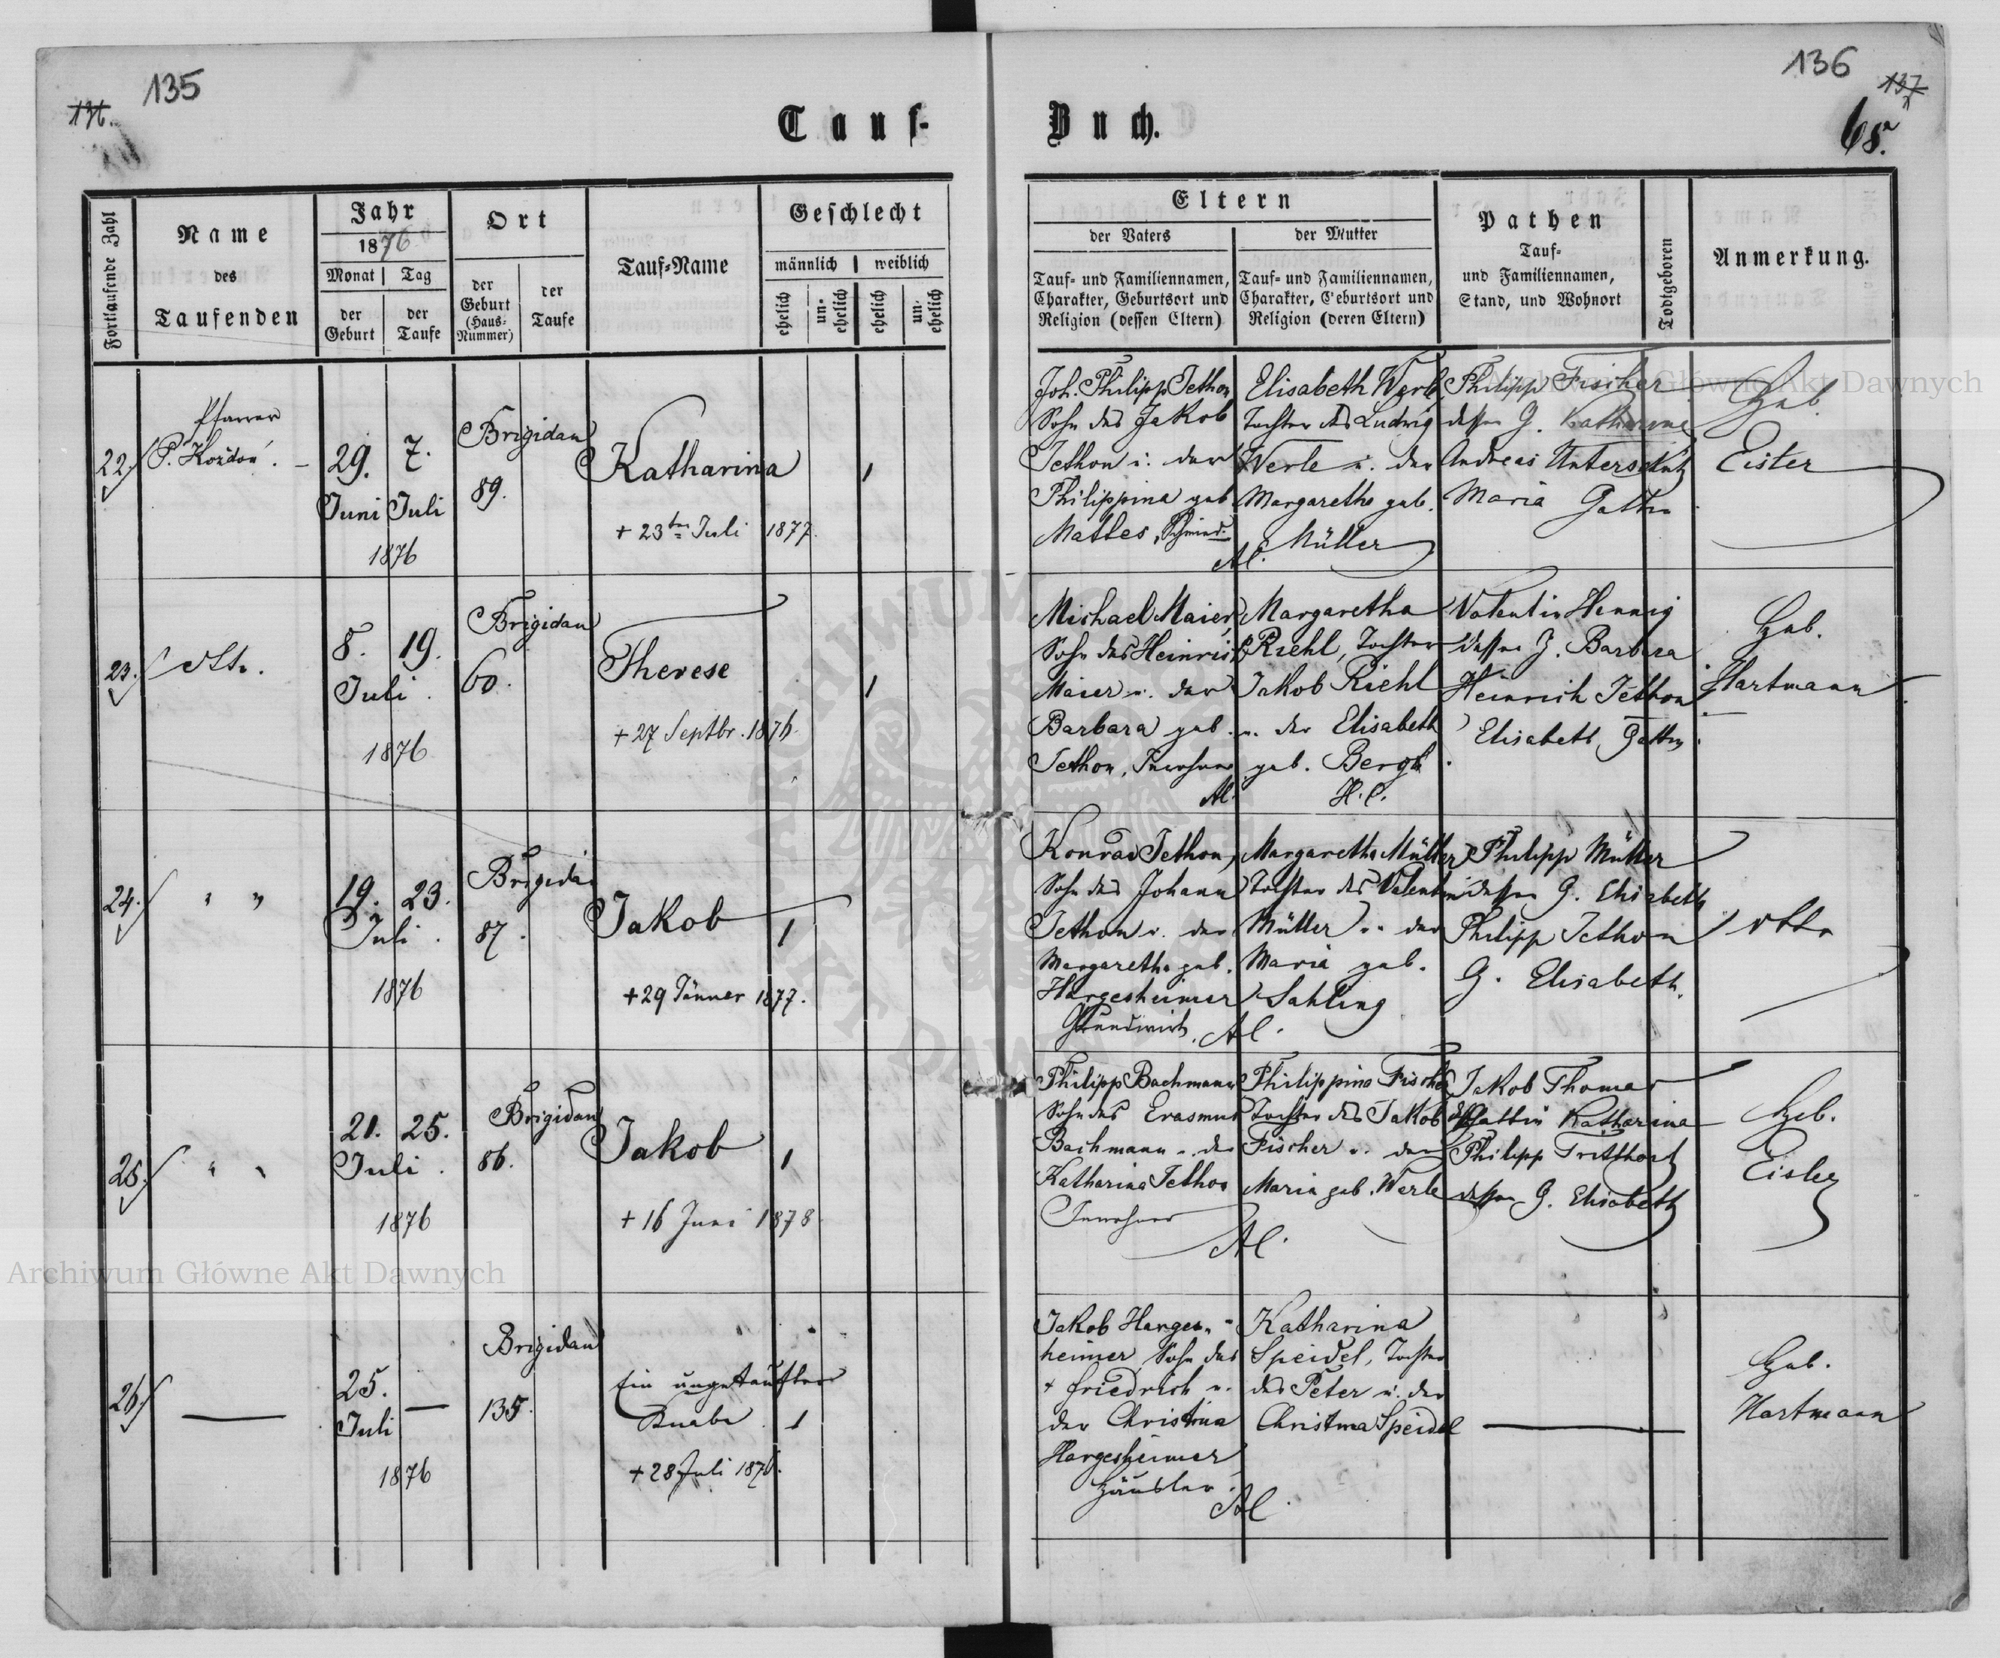 135
136
Tauf-
Buch.
68.a
Fortlaufende Zahl
Name
des
Taufenden
Jahr
1876
Monat
der
Geburt
Tag
der
Taufe
Ort
der
Geburt
(Haus-
Nummer)
der
Taufe
Tauf-Name
Geschlecht
männlich
weiblich
ehelich
un-
ehelich
ehelich
un-
ehelich
Eltern
der Vaters
Tauf- und Familiennamen,
Charakter, Geburtsort und
Religion (dessen Eltern)
der Mutter
Tauf- und Familiennamen,
Charakter, Geburtsort und
Religion (deren Eltern)
Pathen
Tauf-
und Familiennamen,
Stand, und Wohnort
Todtgeboren
Anmerkung.
22.
Pfarrer
P. Koždoń.
29.
Juni
7.
Juli
1876
Brigidau
89.
Katharina
+ 23ten Juli 1877.
1
Joh. Philipp Jethon
Sohn des Jakob
Jethon u. der
Philippina geb.
Mattes, Schmied
Elisabeth Werle
Tochter des Ludwig
Werle u. der
Margaretha geb.
Müller
A.C.
Philipp Fischer
dessen G. Katharina
Andreas Unterschütz
Maria Gattin
Heb.
Eisler
23.
dtto.
8.
Juli
19.
1876
Brigidau
60.
Therese
+ 27 Septbr. 1876.
1
Michael Maier,
Sohn des Heinrich
Maier u. der
Barbara geb.
Jethon, Inwohner
A.C.
Margaretha
Riehl, Tochter
Jakob Riehl
u. der Elisabeth
geb. Bergh
H.C.
Valentin Hennig
dessen G. Barbara
Heinrich Jethon
Elisabeth Gattin
Heb.
Hartmann
24.
" "
19.
Juli
23.
1876
Brigidau
87.
Jakob
+ 29 Jänner 1877.
1
Konrad Jethon,
Sohn des Johann
Jethon u. der
Margaretha geb.
Hargesheimer
Grundwirt.
Margaretha Müller
Tochter des Valentin
Müller u. der
Maria geb.
Sahling
A.C.
Philipp Müller
dessen G. Elisabeth
Philipp Jethon
G. Elisabeth.
dtto
25.
" "
21.
Juli
25.
1876
Brigidau
86.
Jakob
+ 16 Juni 1878
1
Philipp Bachmann
Sohn des Erasmus
Bachmann u. der
Katharina Jethon
Inwohner
Philippina Fischer
Tochter des Jakob
Fischer u. der
Maria geb. Werle
A.C.
Jakob Thomas
Gattin Katharina
Philipp Tritthart
dessen G. Elisabeth
Heb.
Eisler
26.
25.
Juli
1876
Brigidau
135.
Ein ungetaufter
Knabe
+ 28 Juli 1876.
1
Jakob Harges-
heimer, Sohn des
+ Friedrich u.
der Christina
Hargesheimer
Häusler
Katharina
Speidel, Tochter
des Peter u. der
Christina Speidel
A.C.
Heb.
Hartmann
Archiwum Główne Akt Dawnych